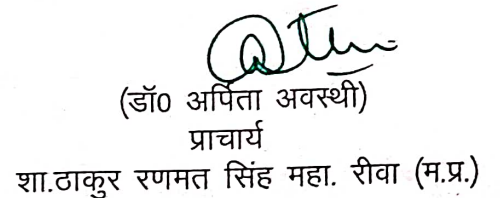 (डॉ0 अर्पिता अवस्थी)
प्राचार्य
शा.ठाकुर रणमत सिंह महा. रीवा (म.प्र.)